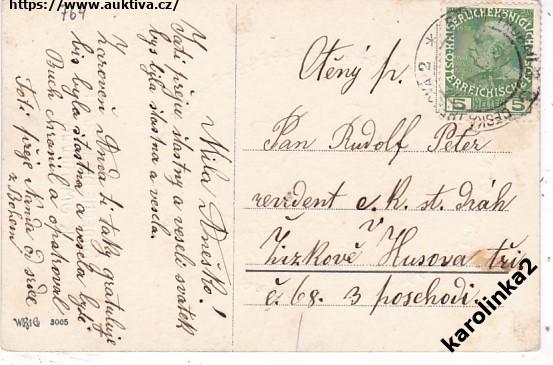 https://www.auktiva.cz/
764
Milá Aneško!
Joti přejiu šťastny a veseli svatek
bys byla šťastna a vesela.
Zaroveň Ande ti taky gratuluje
bis byla šťastna a vesela bude
Buch chranil a opatroval
Toti přeje Nanda od srdce
z Bohem
WRBG 3005
KAISERLICHE KÖNIGLICHE
ÖSTERREICHISCHE
5 HELLER 5
ČESKÁ
2
Ctěný p.
Pan Rudolf Petér
revident c. k. st. dráh
v
Žižkově Husova tři
č. 68. 3 poschodi
karolinka2